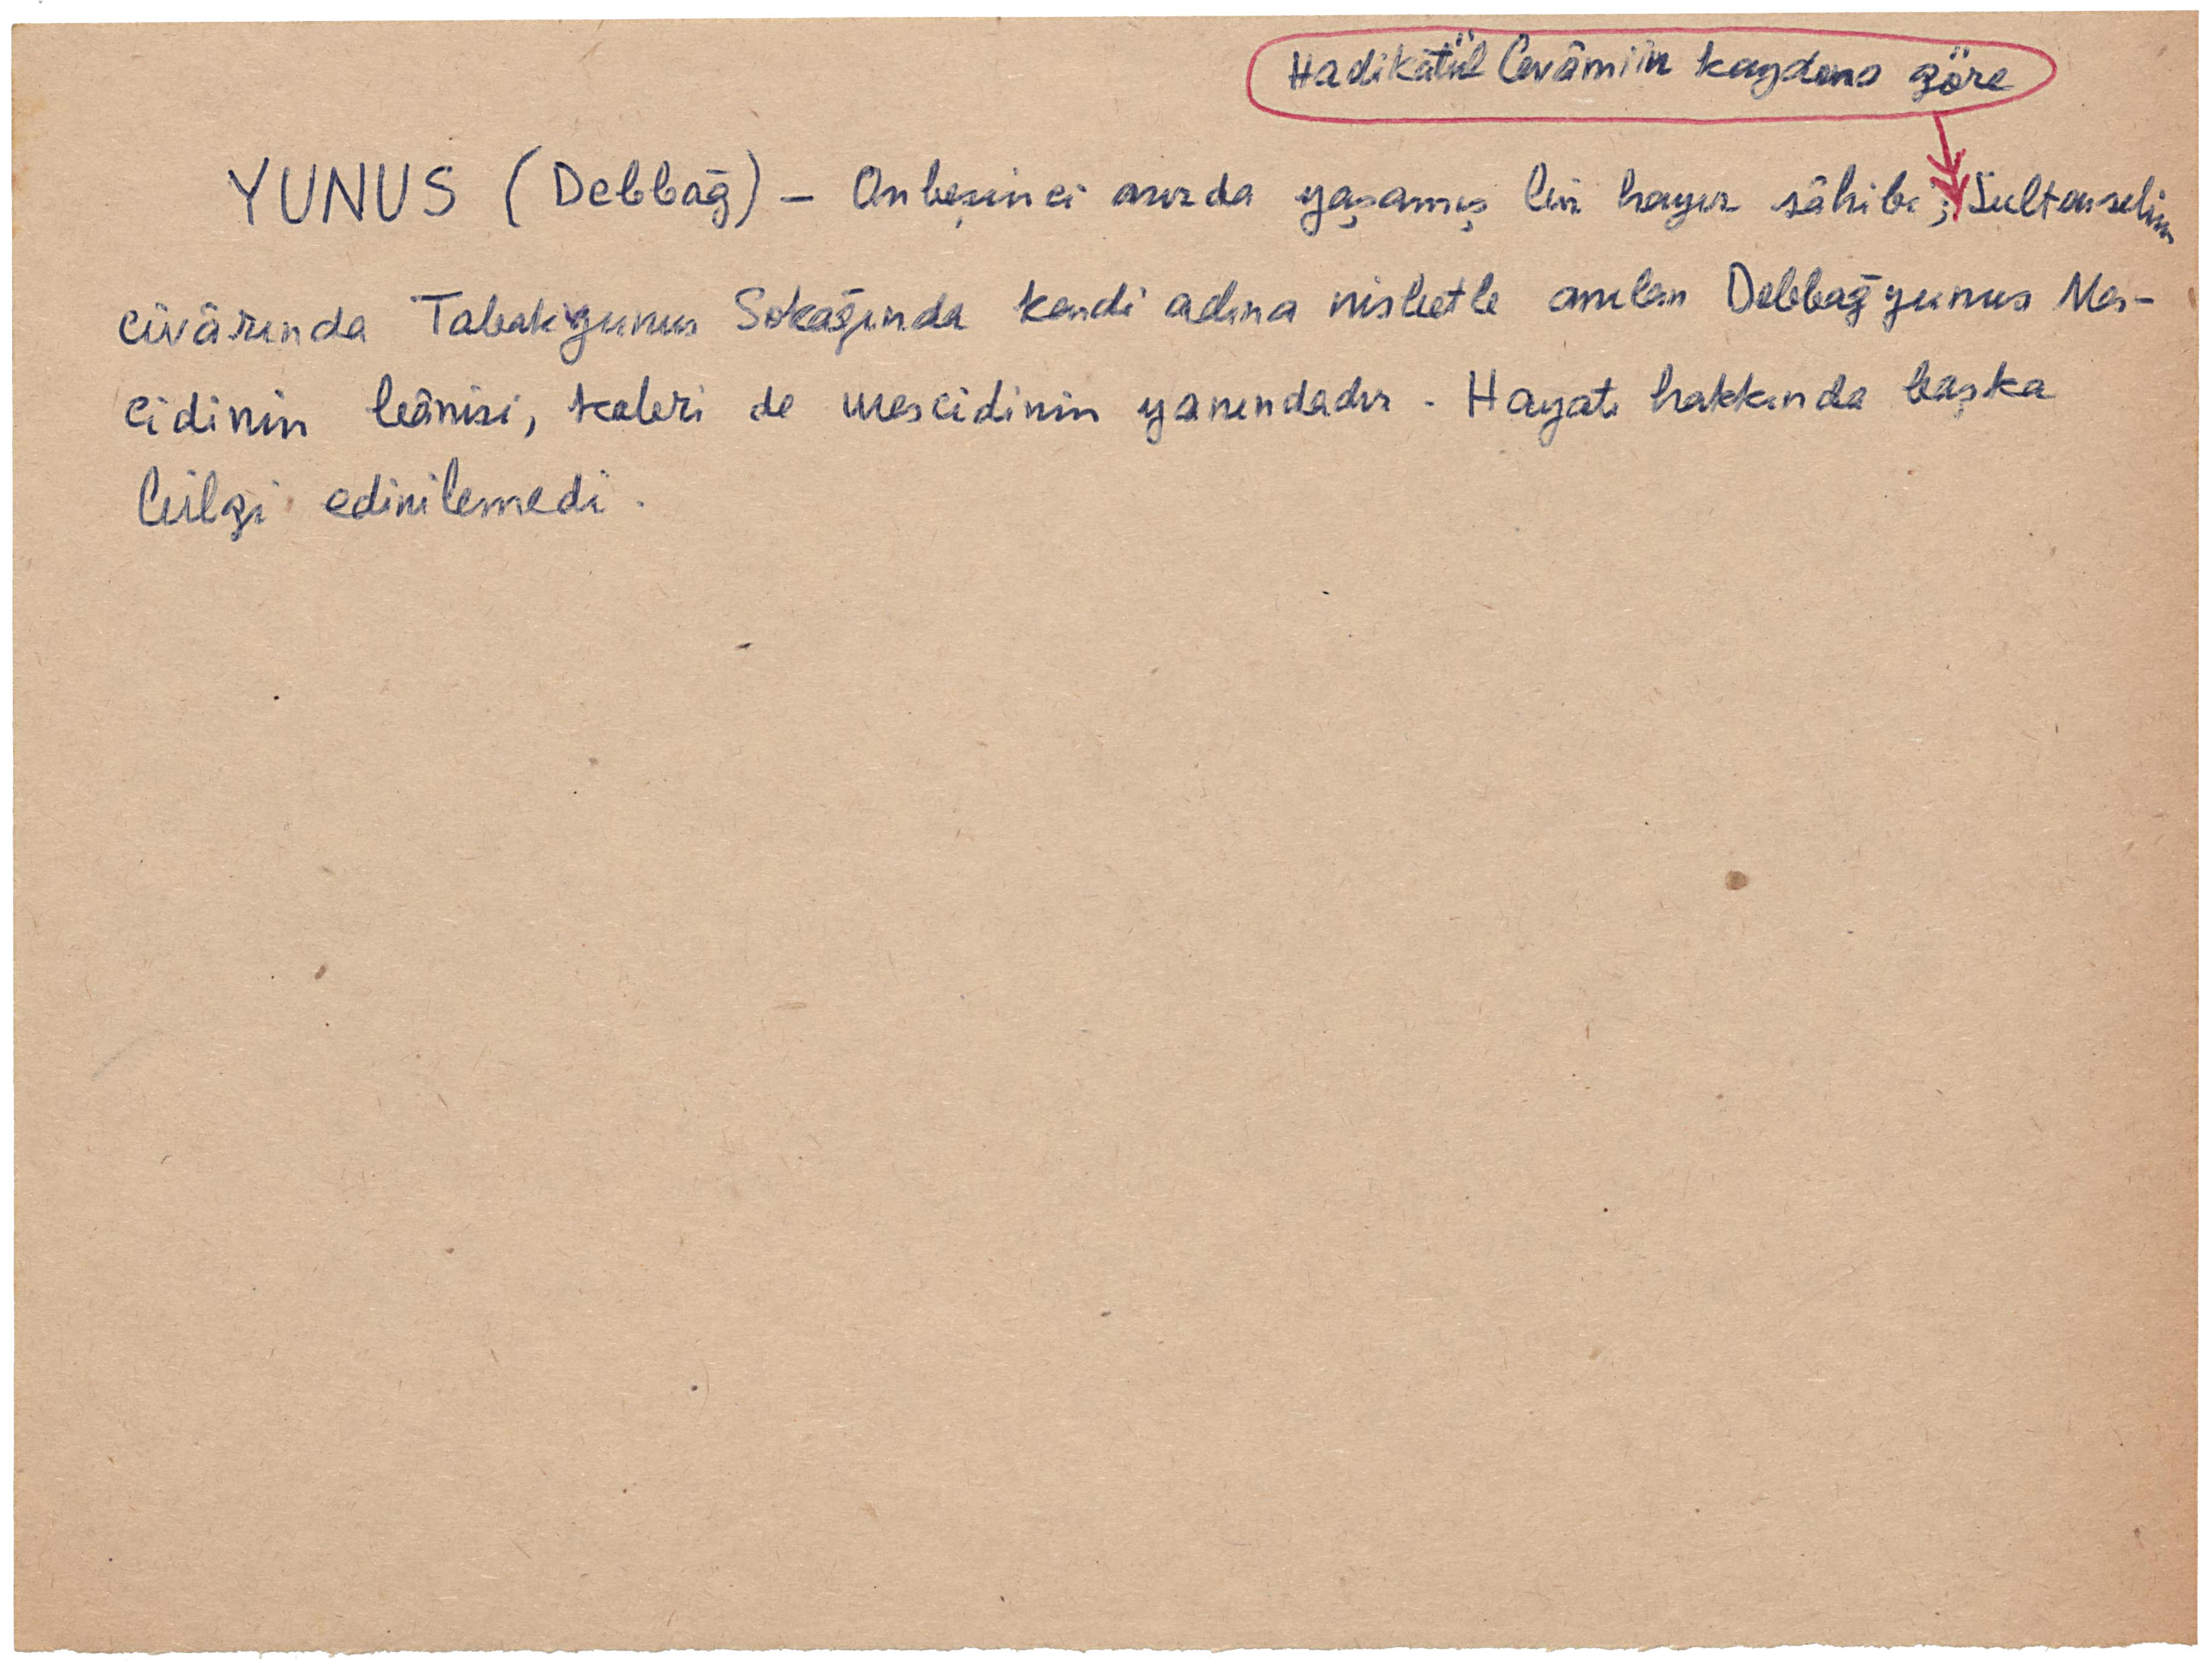 Hadikatül Cevâmiin kaydına göre
YUNUS (Debbağ) – Onbeşinci asırda yaşamış bir hayır sâhibi; Sultanselim
civârında Tabakyunus Sokağında kendi adına nisbetle anılan Debbağyunus Mes-
cidinin bânisi, kabri de mescidinin yanındadır. Hayatı hakkında başka
bilgi edinilemedi.